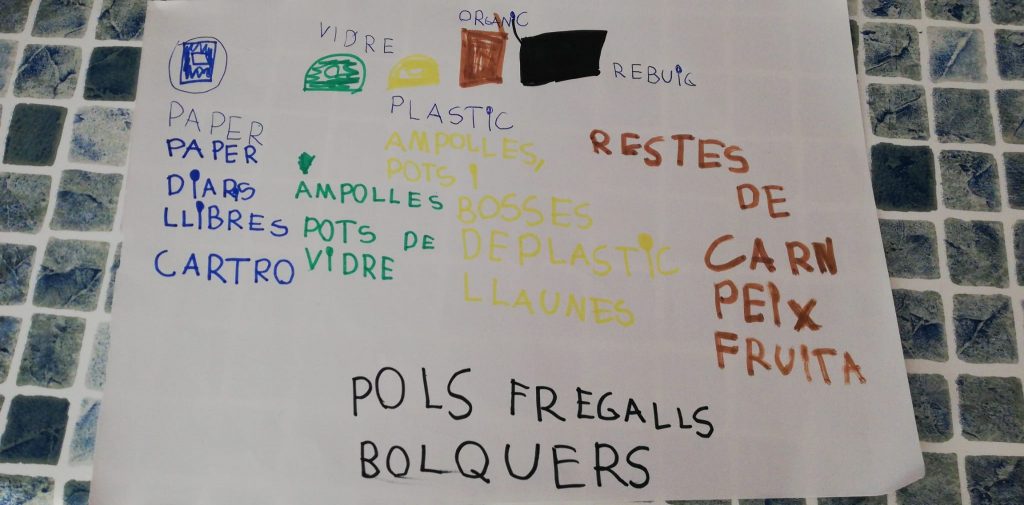 ORGANIC
VIDRE
REBUIG
PAPER
PLASTIC
PAPER
DIARS
LLIBRES
CARTRO
AMPOLLES
POTS DE
VIDRE
AMPOLLES,
POTS I
BOSSES
DE PLASTIC
LLAUNES
RESTES
DE
CARN
PEIX
FRUITA
POLS FREGALLS
BOLQUERS